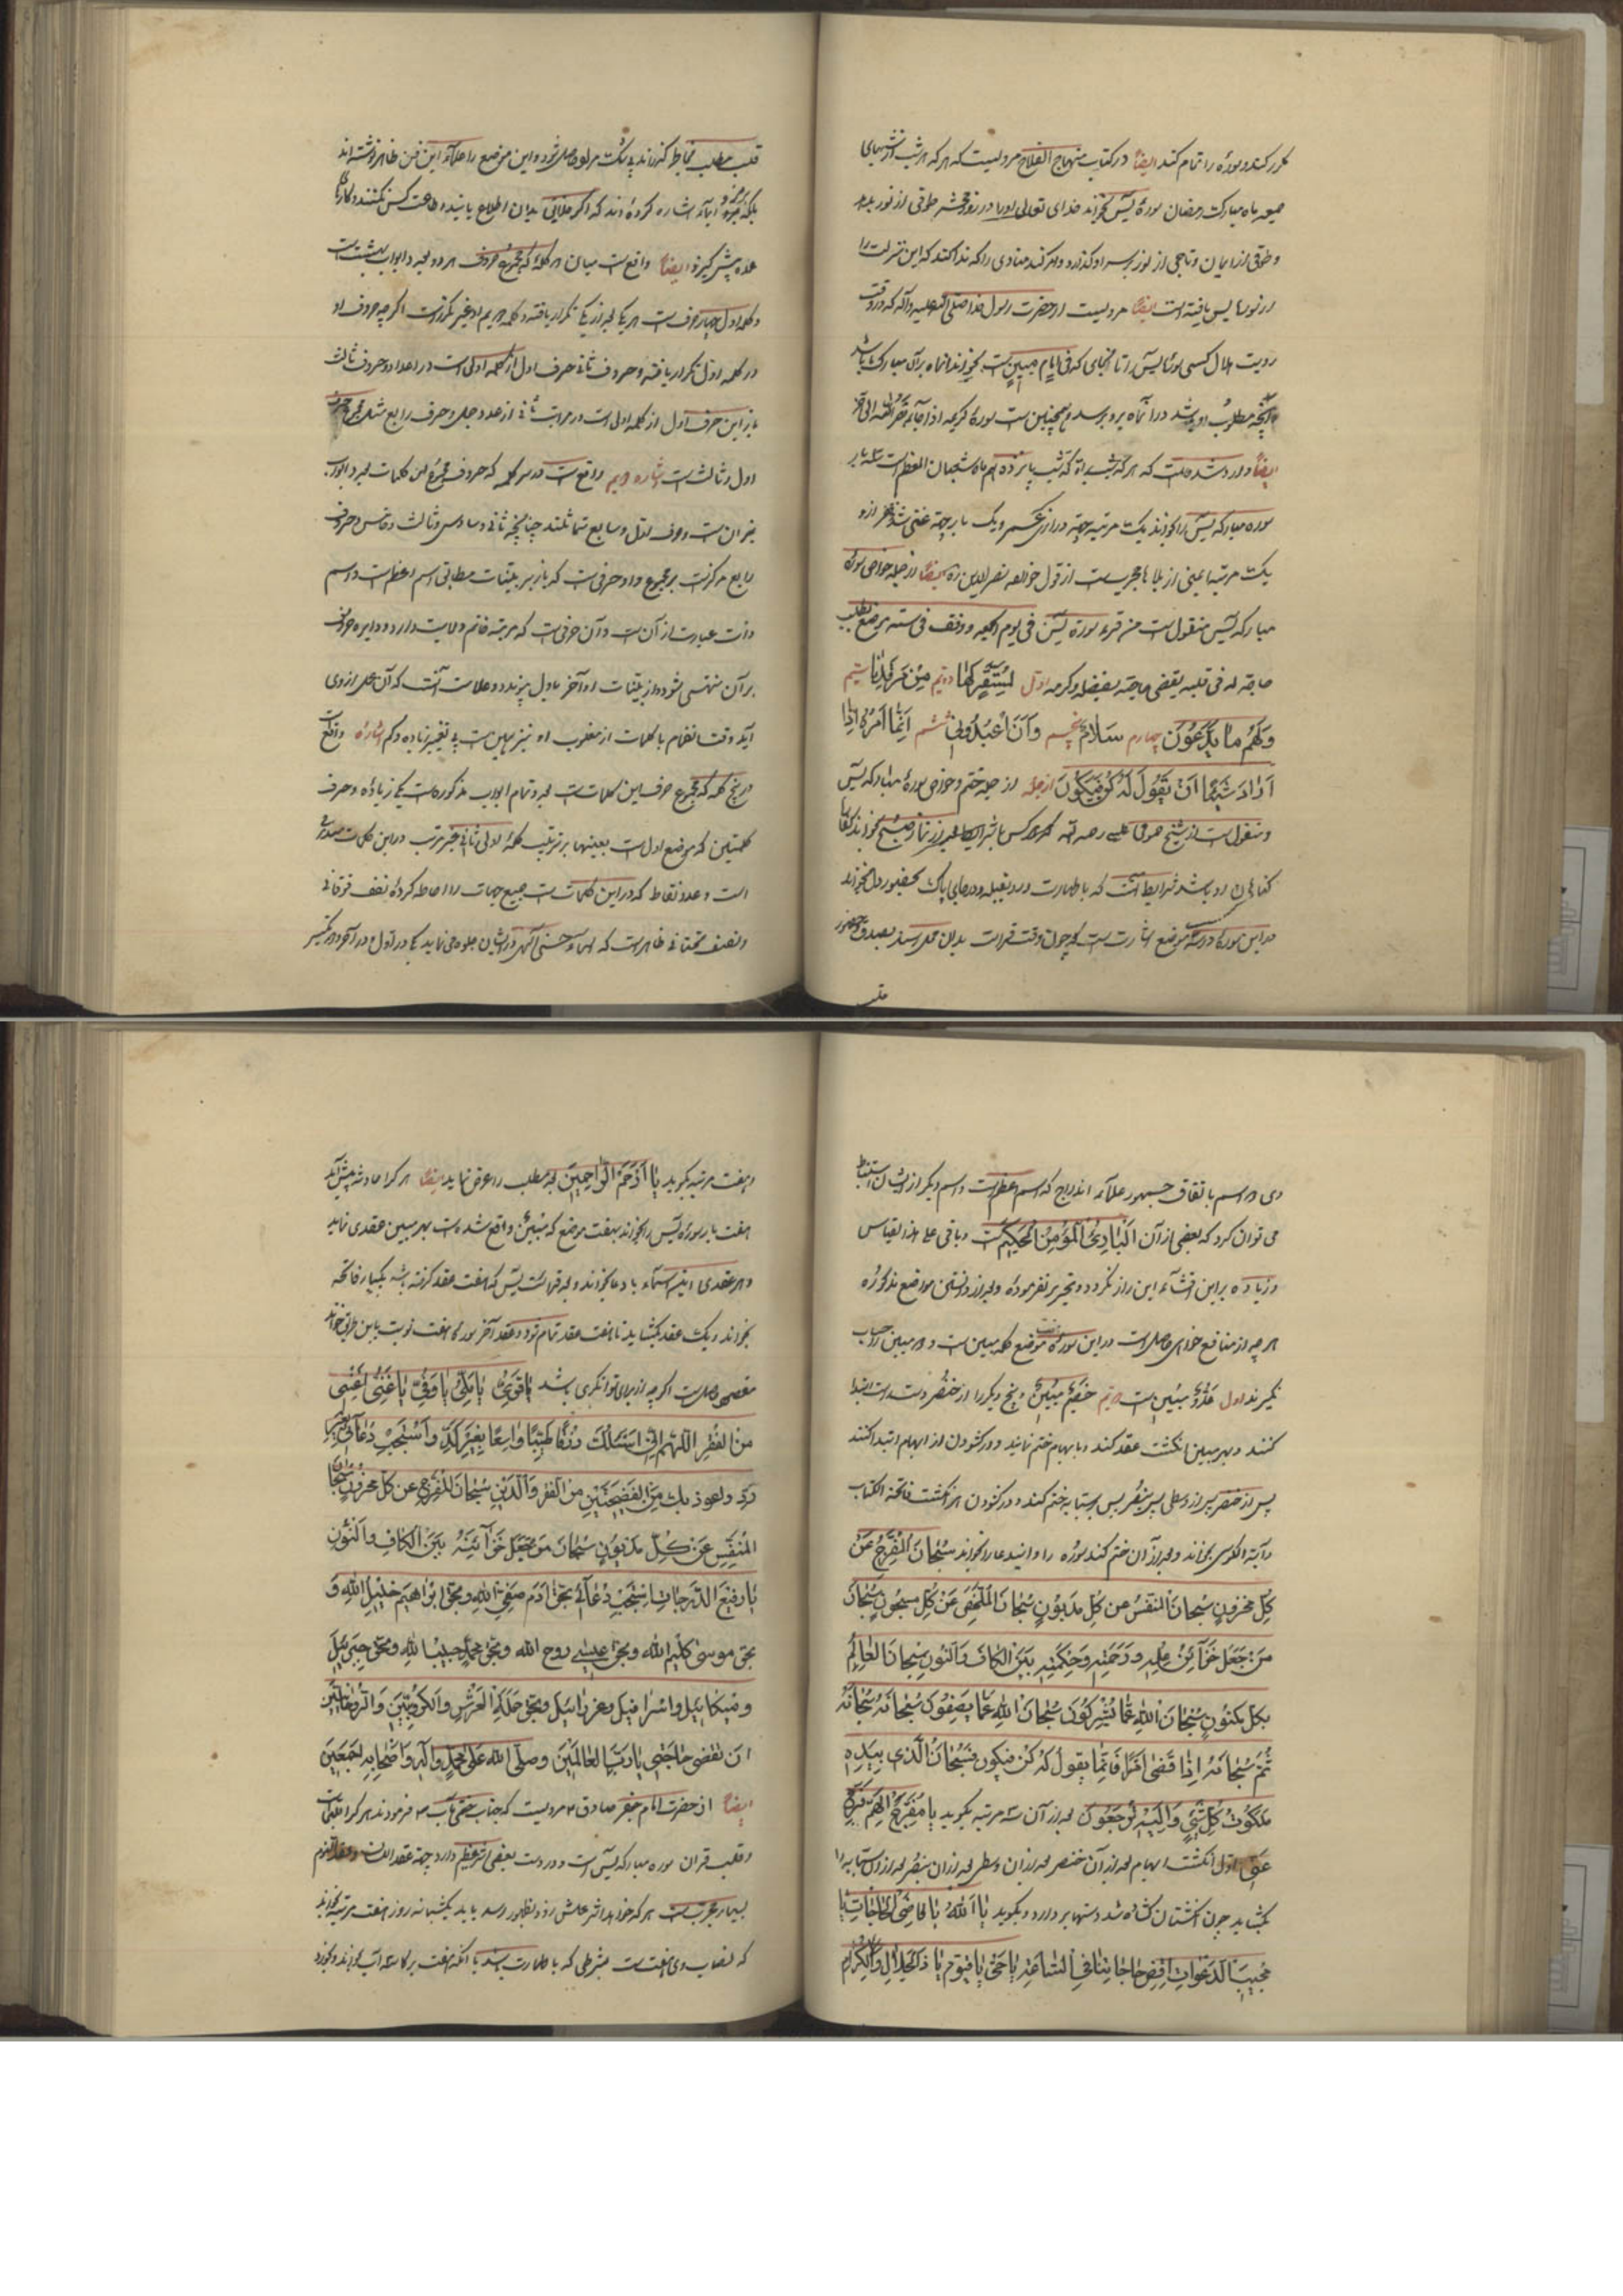 مکرر کند و سوره را تمام کند ایضاً در کتاب منهاج الفلاح مرویست که هر که هر شب از شبهای
ماه مبارک رمضان سورهٔ یس بخواند خدای تعالی او را در روز محشر طوقی از نور بدهد
و طوقی از ایمان و تاجی از نور بر سر او گذارد و امر کند منادی را که ندا کند که این منزلت را
از سوره یس یافته است ایضاً مرویست از حضرت رسول خدا صلی الله علیه وآله که در وقت
رویت هلال کسی سوره یس را تا انجای که فی امام مبین است بخواند انماه بر آن مبارک باشد
و آنچه مطلوب او باشد در آنماه برو برسد و همچنین است سورهٔ کریمه اذا جاء نصر الله
ایضاً وارد شده است که هر که شب براة که شب پانزدهم ماه شعبان المعظم است سه بار
سوره مبارکه یس را بخواند یک مرتبه جهة درازی عمر و یک بار جهة غنی شدن
یک مرتبه ایمنی از بلاها مجربست از قول خواجه نصیر الدین ایضاً از جمله خواص سورهٔ
مبارکه یس منقول است من قرء سورة یس فی یوم ووقف فی ستة مواضع یطلب
حاجة له فی قلبه یقضی حاجته بفضله وکرمه اول لمستقر لها دویم من مرقدنا سیم
ولهم ما یدعون چهارم سلام پنجم وان اعبدونی ششم انما امره اذا
اراد شیئا ان یقول له کن فیکون از جمله ختم و خواص سورهٔ مبارکه یس
منقول است از شیخ علیه رحمه که هر کس با شرایط بعد از نماز صبح بخواند
کشایش رو باشد شرایط آنست که با طهارت و رو بقبله و در جای پاک بحضور دل بخواند
در این سوره در سه موضع اشارت است که چون وقت قرائت بدان محل رسند بصدق حضور
قلب
قلب مطلب بخاطر گذرانند بی شک مراد حاصل شود و این موضع را علماء این فن ظاهر ننوشته اند
بلکه برمز و ایماء اشاره کرده اند که اگر خلایق بدان اطلاع یابند اطاعت کس نکنند و کار
عده پیش گیرند ایضاً واقع است میان هر کلمه که مجموع حروف هر دو بعدد ابواب بهشت است
و کلمه اول چهار حرف است هر یک بعد از یکی تکرار یافته و کلمه دویم او غیر مکرر است اگر چه حروف او
در کلمه اول تکرار یافته و حروف ثانی حرف اول از کلمه اولی است در اعداد و حروف ثالث
باز این حرف اول از کلمه اولی است در مراتب ثانی از عدد جمل و حرف رابع مثل مجموع
اول و ثالث است اشاره دویم واقع است در سه کلمه که حروف مجموع این کلمات بعدد ابواب
نیران است و حرف اول و سابع متماثلند چنانچه ثانی و سادس و ثالث و خامس و حروف
رابع مرکز است بر مجموع و او حرفی است که باز بر بینات مطابق اسم اعظم است و اسم
ذات عبارت از آن است و آن حرفی است که مرتبه خاتم ولایت دارد و دایره حروف
بر آن منتهی شود و از بینات او آخر باول پیوندد و علامت آنست که آن محل از وی
آید وقت انضمام با کلمات از مغلوب او نیز همین است بی تغییر زیاده و کم اشاره واقع است
در پنج کلمه که مجموع حرف این کلمات بعدد تمام ابواب مذکوره است یکی زیاده و حرف
کلمتین که موضع اول است بعینها بر ترتیب کلمهٔ اولی ثانی غیر مرتب در این کلمات مندرج
است و عدد نقاط که در این کلمات است جمیع جهات را احاطه کرده نصف فوقانی
و نصف تحتانی ظاهر است که اسماء حسنی الهی در شان جلوه می نماید یکی در اول و در آخر
دی در اسم باتفاق جمهور علما اندراج که اسم اعظم است و اسم دیگر از ایشان استنباط
می توان کرد که بعضی از آن الباری المؤمن الحکیم است و باقی علی هذا القیاس
و زیاده بر این افشاء این راز نکرد و تحریر نفرموده و بعد از دانستن مواضع مذکوره
هر چه از منافع خواهی حاصل است در این سوره هفت موضع کلمه مبین است و هر مبین
گیرند اول عدو مبین است دویم خصیم مبین و پنج دیگر را از خنصر دست راست ابتدا
کنند و بهر مبین انگشت عقد کند و بابهام ختم نمایند و در کشودن از ابهام ابتدا کنند
پس از خنصر پس از وسطی پس بنصر پس بسبابه ختم کند و در کشودن هر انگشت فاتحة الکتاب
و آیة الکرسی بخواند و بعد از آن ختم کند سوره را و اینداعا را بخواند سبحان المفرج عن
کل محزون سبحان المنفس عن کل مدیون سبحان عن کل مسجون سبحان
من جعل خزائن علمه ورحمته وحکمته بین الکاف والنون سبحان العالم
بکل مکنون سبحان الله عما یشرکون سبحان الله عما یصفون سبحانه سبحانه
ثم سبحانه اذا قضی امرا فانما یقول له کن فیکون فسبحان الذی بیده
ملکوت کل شیء والیه ترجعون بعد از آن سه مرتبه بگوید یا مفرج الهم فرج
عنی اول انگشت ابهام بعد از آن خنصر بعد از آن وسطی بعد از آن بنصر بعد از آن سبابه را
بکشاید چون انگشتان کشاده شد دستها بردارد و بگوید یا الله یا قاضی الحاجات یا
مجیب الدعوات اقض حاجاتنا فی الساعة یا حی یا قیوم یا ذا الجلال والاکرام
و هفت مرتبه بگوید یا ارحم الراحمین بعد مطلب را عرض نماید ایضاً هر کرا حادثه پیش آید
هفت بار سورهٔ یس را بخواند بهفت موضع که مبین واقع شده است بهر مبین عقدی نماید
و هر عقدی این اسماء یا دعا بخواند و بعد قرائت یس که هفت عقد گرفته باشد یکبار فاتحه
بخواند و یک عقد بکشاید تا هفت عقد تمام شود و عقد آخر سوره هفت نوبت باین طریق خواند
مقصود حاصل است اگر چه از برای توانگری باشد یا قوی یا ملی یا وفی یا غنی اغننی
من الفقر اللهم انی اسئلک رزقا طیبا واسعا بغیر کد واستجب دعائی بغیر
رد واعوذ بک من الفضیحتین من الفقر والدین سبحان المفرج عن کل محزون سبحان
المنفس عن کل مدیون سبحان من جعل خزائنه بین الکاف والنون
یا رفیع الدرجات استجب دعائی بحق آدم صفی الله وبحق ابراهیم خلیل الله و
بحق موسی کلیم الله وبحق عیسی روح الله وبحق محمد حبیب الله وبحق جبرئیل
ومیکائیل واسرافیل وعزرائیل وبحق حملة العرش والکروبیین والروحانیین
ان تقضی حاجتی یا رب العالمین وصلی الله علی محمد وآله واصحابه اجمعین
ایضاً از حضرت امام جعفر صادق ع مرویست که جناب ختمی ماب ص فرمودند هر کرا
و قلب قران سوره مبارکه یس است و دردست بعضی اثر عظیم دارد جهة عقد اللسان و عقد النوم
بسیار مجربست هر که خواهد اثر عملش زود بظهور رسد باید یکشبانه روز هفت مرتبه بخواند
که نصاب وی هفت است بشرطی که با طهارت باشد یا آنکه هفت بر کاسه آب بخواند و بخورد